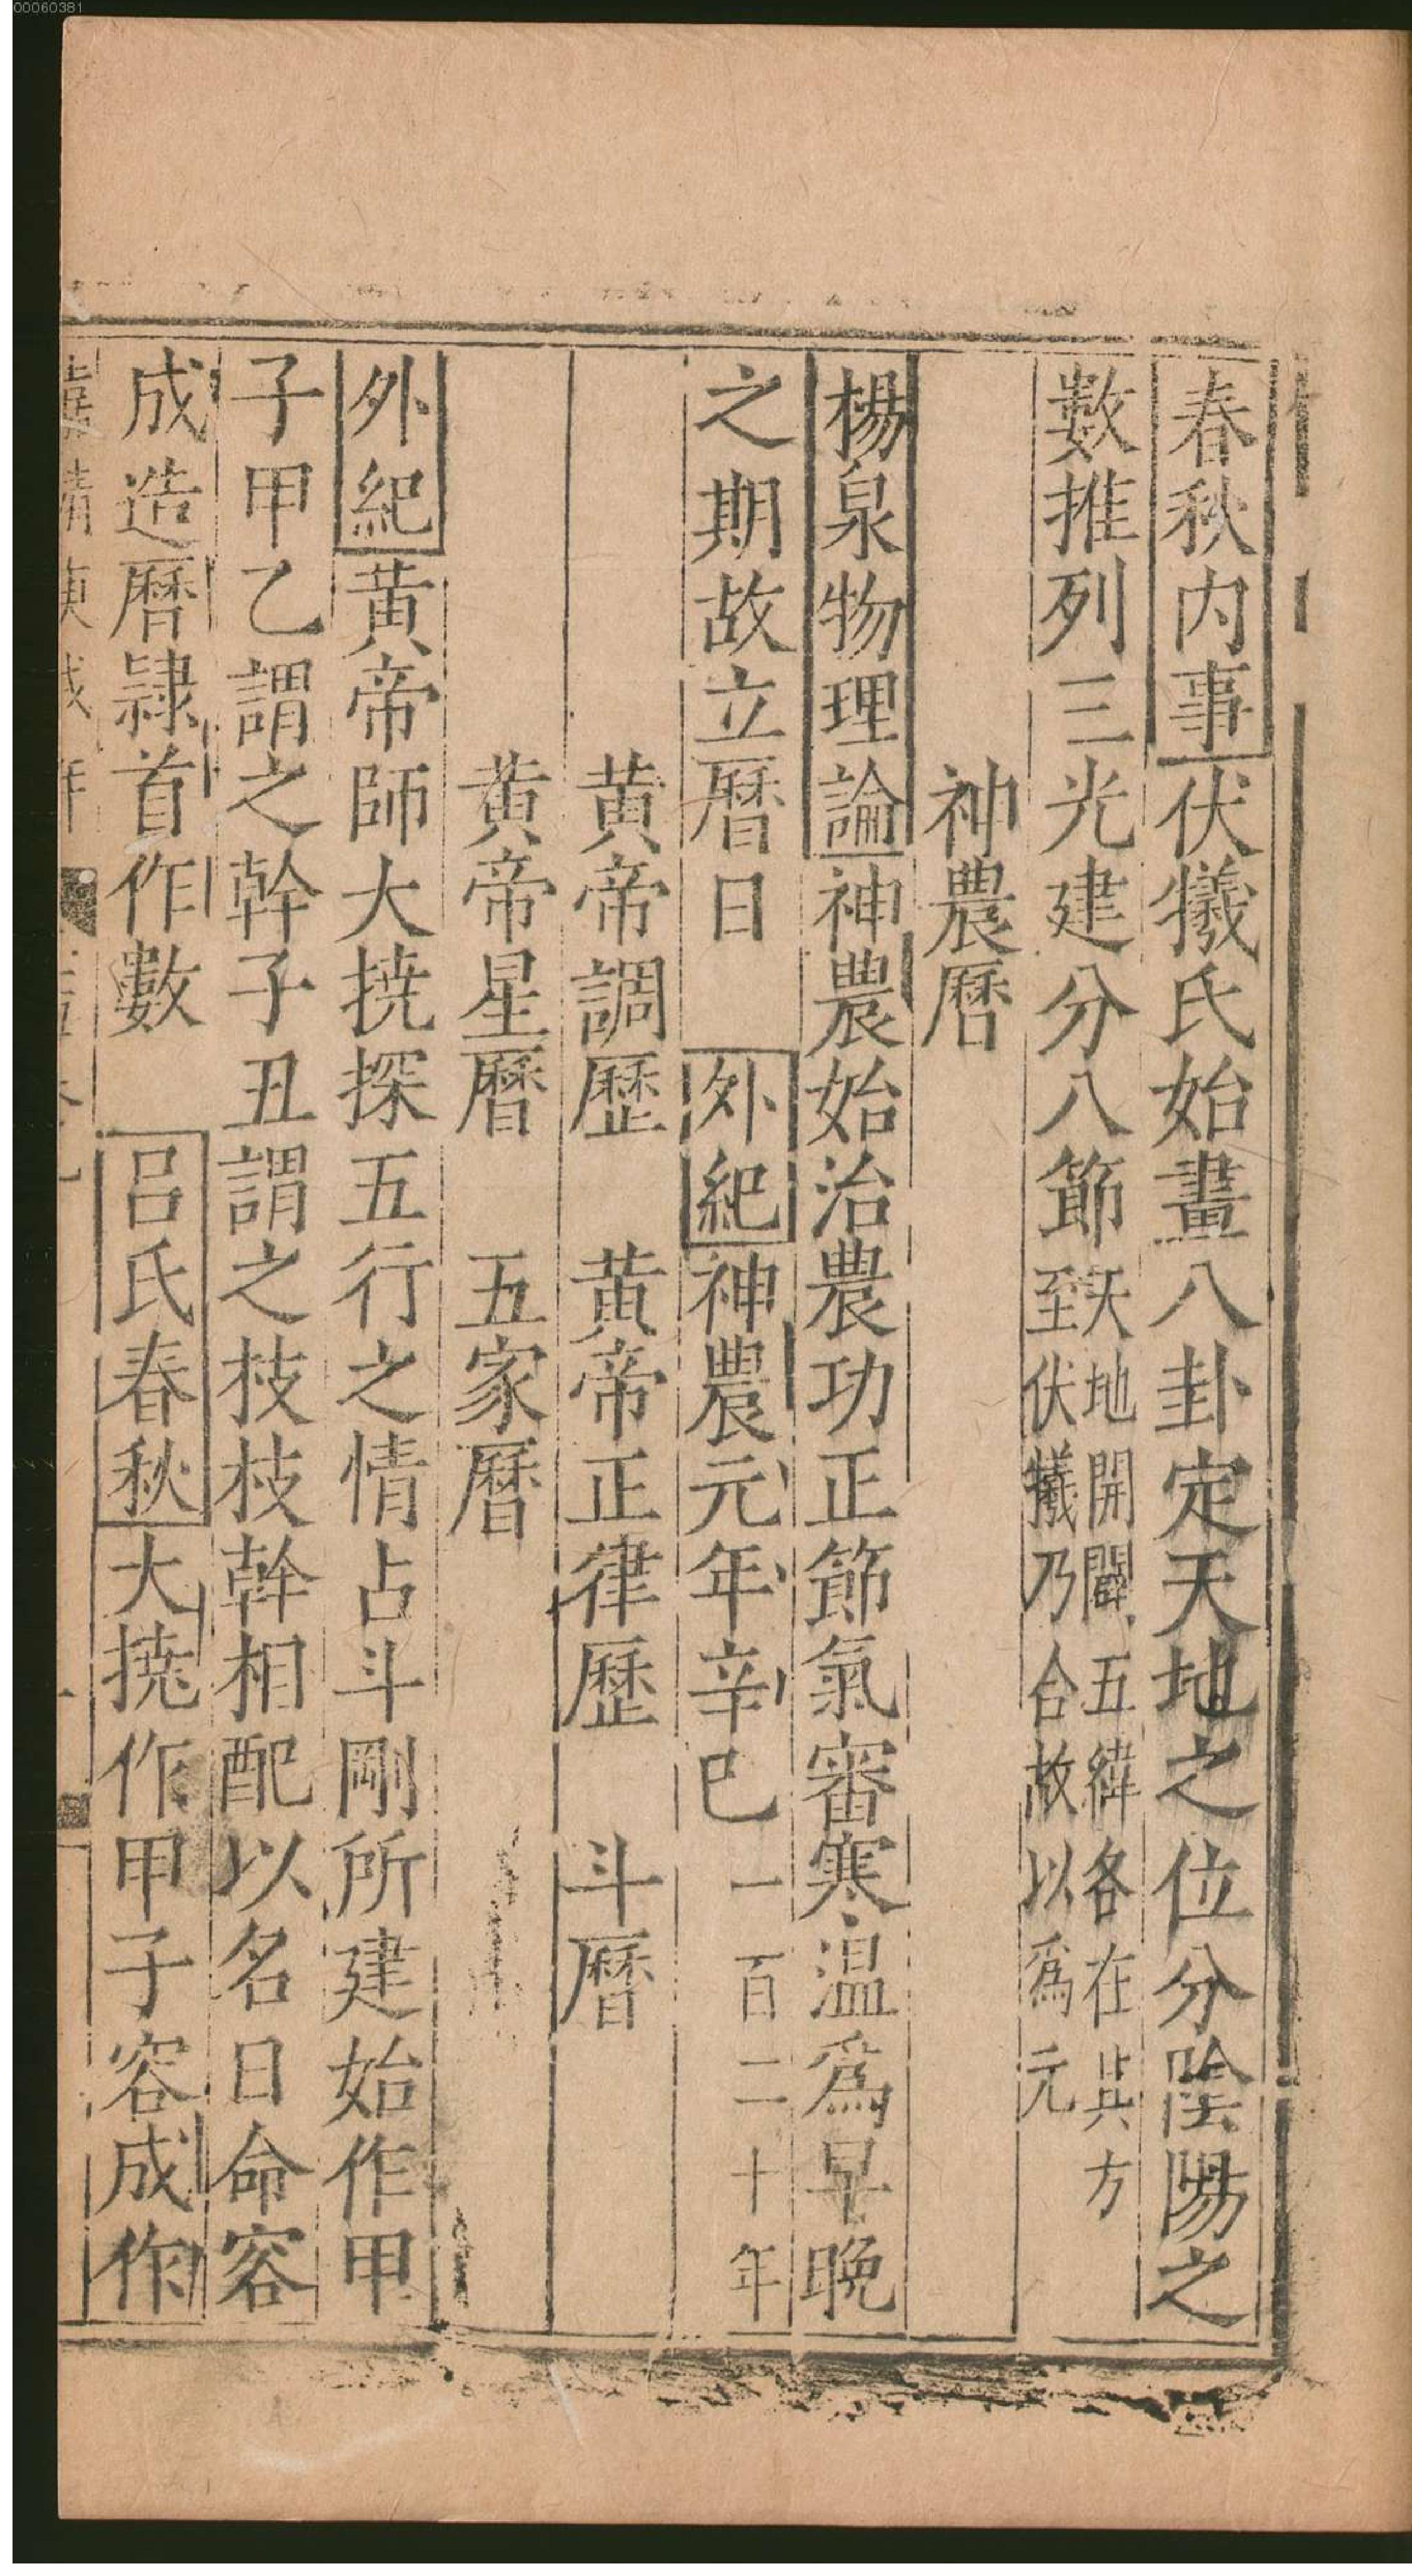 00060381
春秋内事伏犧氏始畫八卦定天地之位分陰陽之
數推列三光建分八節天地開闢五緯各在其方
至伏犧乃合故以爲元
神農曆
楊泉物理論神農始治農功正節氣審寒温爲早晚
之期故立曆日　外紀神農元年辛巳一百二十年
黄帝調歷　黄帝正律歷　斗曆
黄帝星曆　五家曆
外紀黄帝師大撓探五行之情占斗剛所建始作甲
子甲乙謂之幹子丑謂之枝枝幹相配以名日命容
成造曆隷首作數　吕氏春秋大撓作甲子容成作